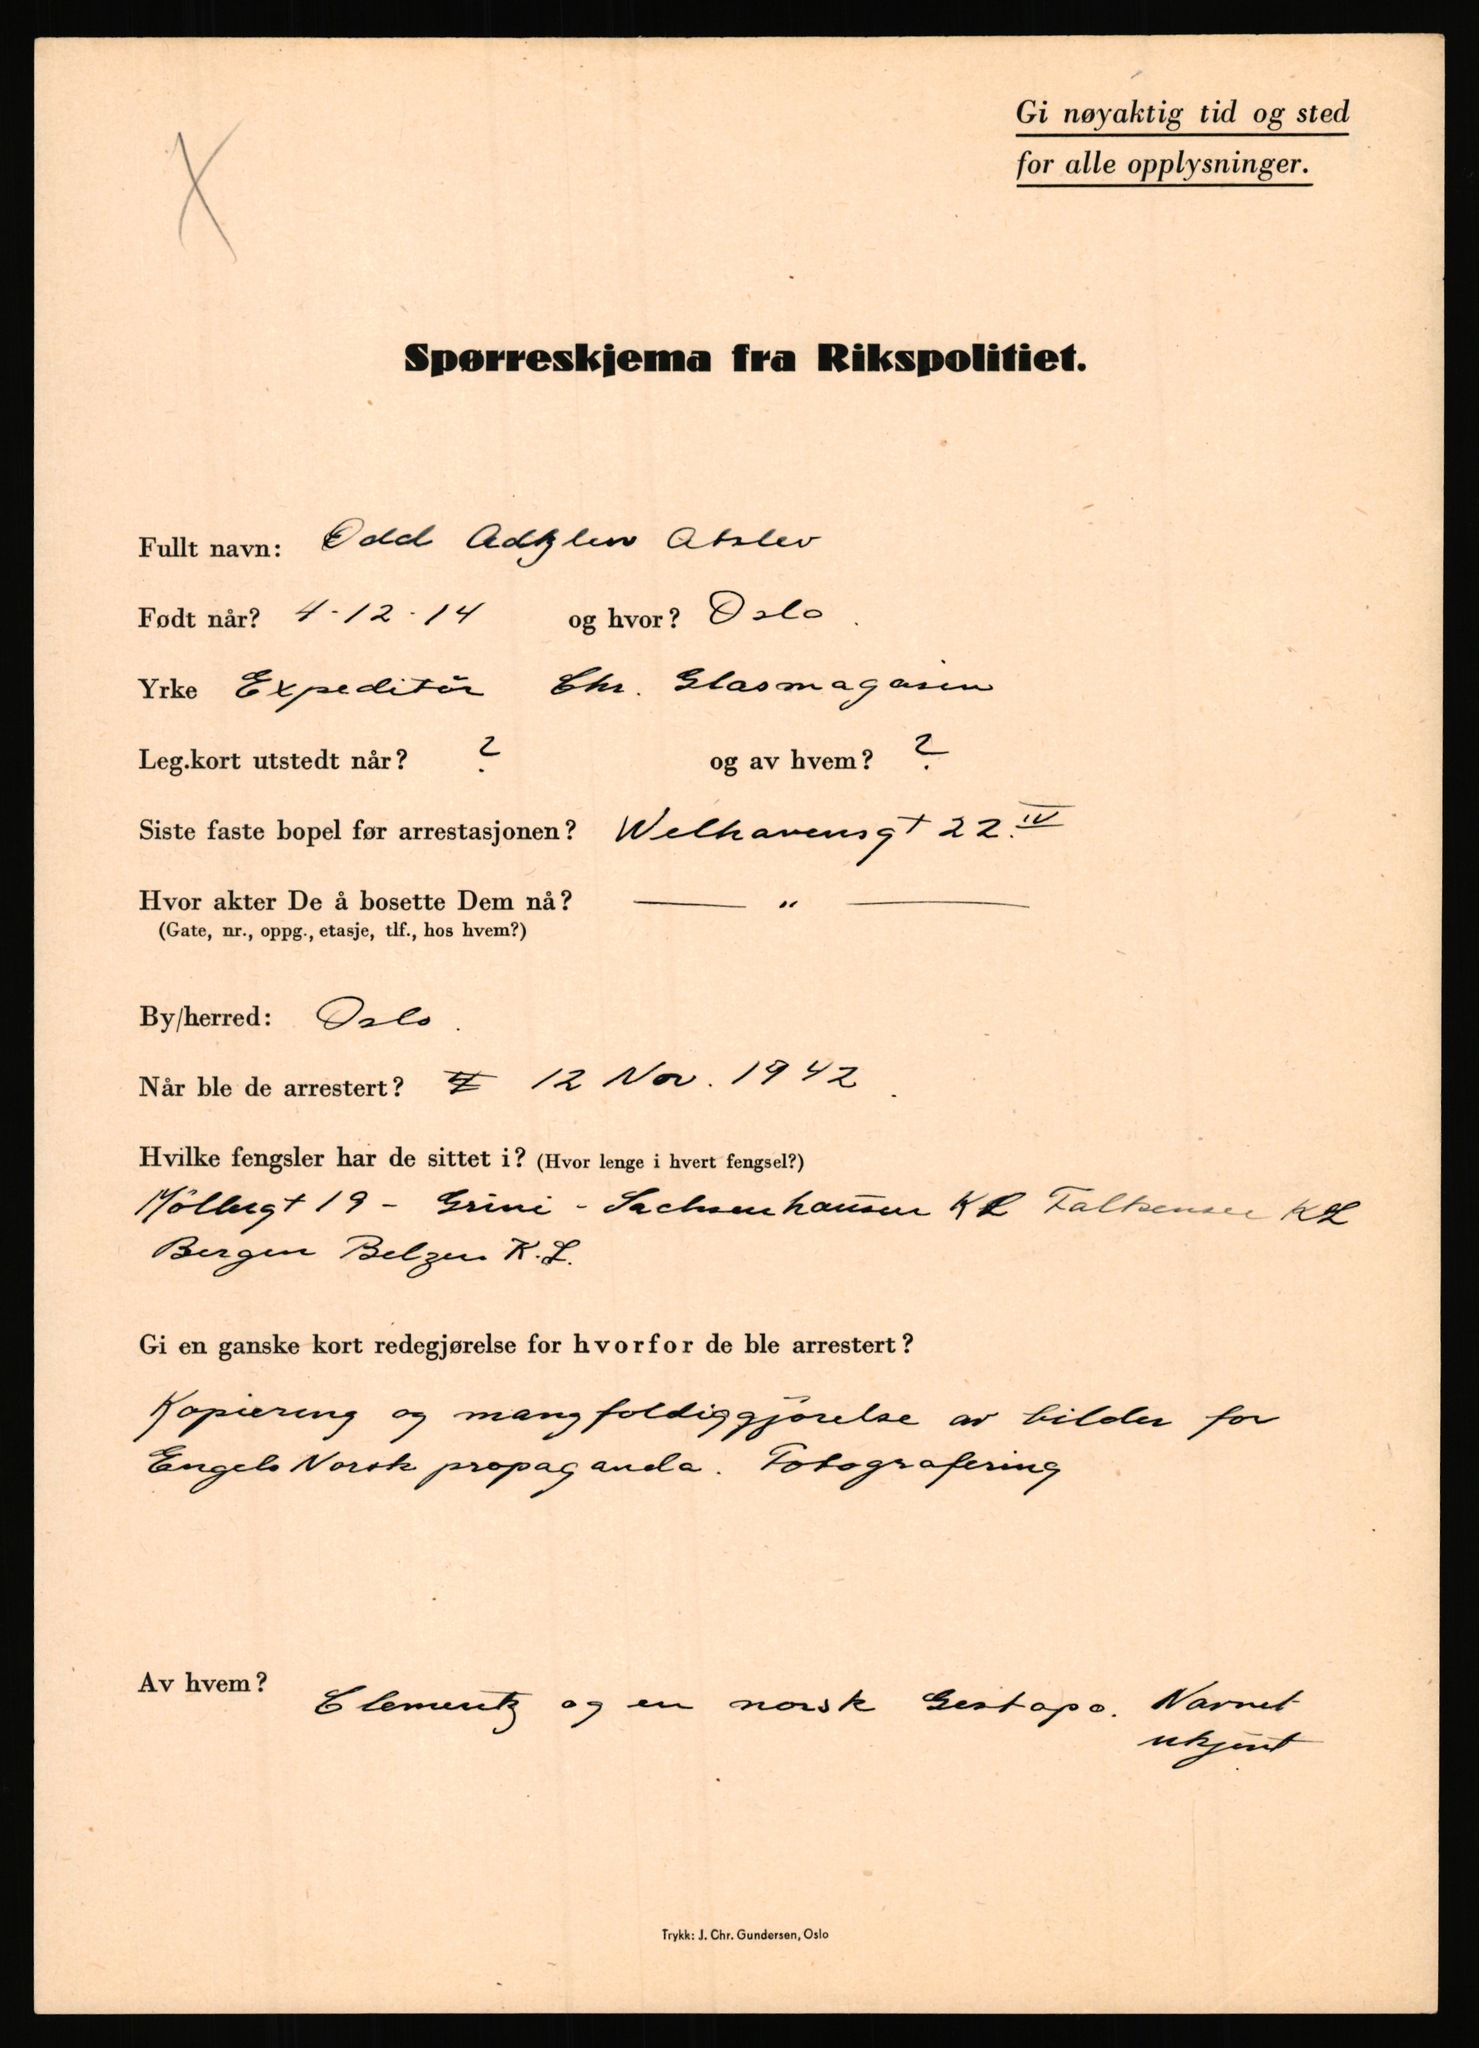 Gi nøyaktig tid og sted
for alle opplysninger.
X
Spørreskjema fra Rikspolitiet.
Fullt navn: Odd Atslev
Født når? 4-12-14 og hvor? Oslo.
Yrke Expeditör Chr. Glasmagasin
Leg.kort utstedt når? ? og av hvem? ?
Siste faste bopel før arrestasjonen? Welhavensgt 22. IV
Hvor akter De å bosette Dem nå? — " —
(Gate, nr., oppg., etasje, tlf., hos hvem?)
By/herred: Oslo.
Når ble de arrestert? 12 Nov. 1942.
Hvilke fengsler har de sittet i? (Hvor lenge i hvert fengsel?)
Möllergt 19 - Grini - Sachsenhausen KL Falkensee KL
Bergen Belzen K.L.
Gi en ganske kort redegjørelse for hvorfor de ble arrestert?
Kopiering og mangfoldiggjörelse av bilder for
Engels Norsk propaganda. Fotografering
Av hvem? Clementz og en norsk Gestapo. Navnet
ukjent
Trykk: J. Chr. Gundersen, Oslo